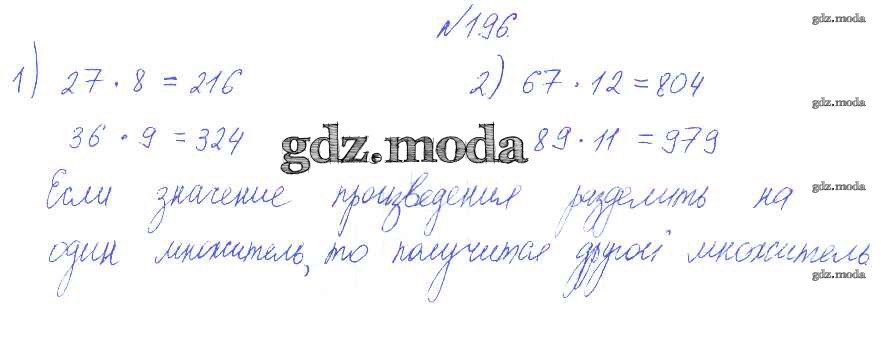 №196.
gdz.moda
1) 27 · 8 = 216 2) 67 · 12 = 804
gdz.moda
36 · 9 = 324 gdz.moda 89 · 11 = 979
Если значение произведения разделить на gdz.moda
один множитель, то получится другой множитель
gdz.moda